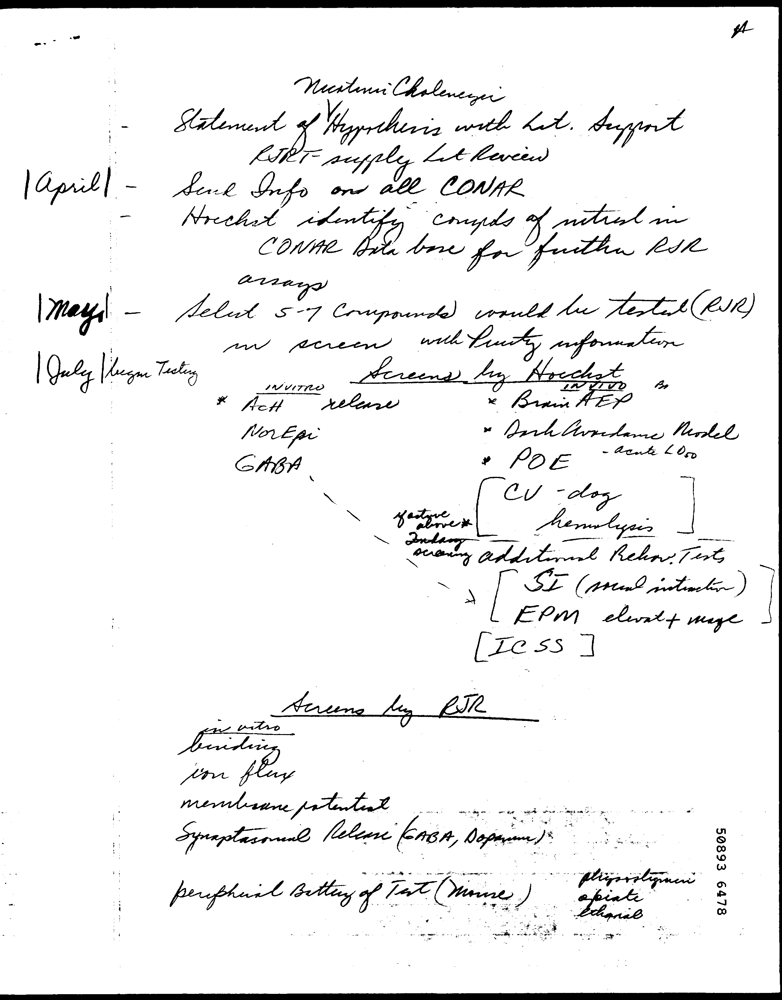 Nicotinic Cholenergic
- Statement of Hypothesis with Lit. Support
RJRT - supply Lit Review
|April| - Send Info on all CONAR
- Hoechst identify compds of intrest in
CONAR Data base for further RJR
assays
|May| - Select 5-7 Compounds would be tested (RJR)
in screen with Purity information
|July| began Testing
Screens by Hoechst
INVITRO
* AcH release
NorEpi
GABA
INVIVO
* Brain AEP
* Dark Avoidance Model
* POE - acute LD50
[CV - dog
hemolysis]
if active
above *
screening
additional Behav. Tests
[SI (social intraction)
EPM elevat + maze]
[ICSS]
Screens by RJR
in vitro
binding
ion flux
membrane potential
Synaptasomal Release (GABA, Dopamine)
peripherial Battery of Test (Mouse)
physostigmini
opiate
ethanol
50893 6478